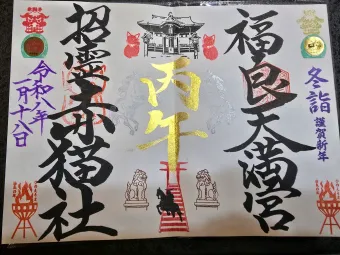 福良天満宮
冬詣
謹賀新年
丙午
招霊赤猫社
令和八年
一月十八日